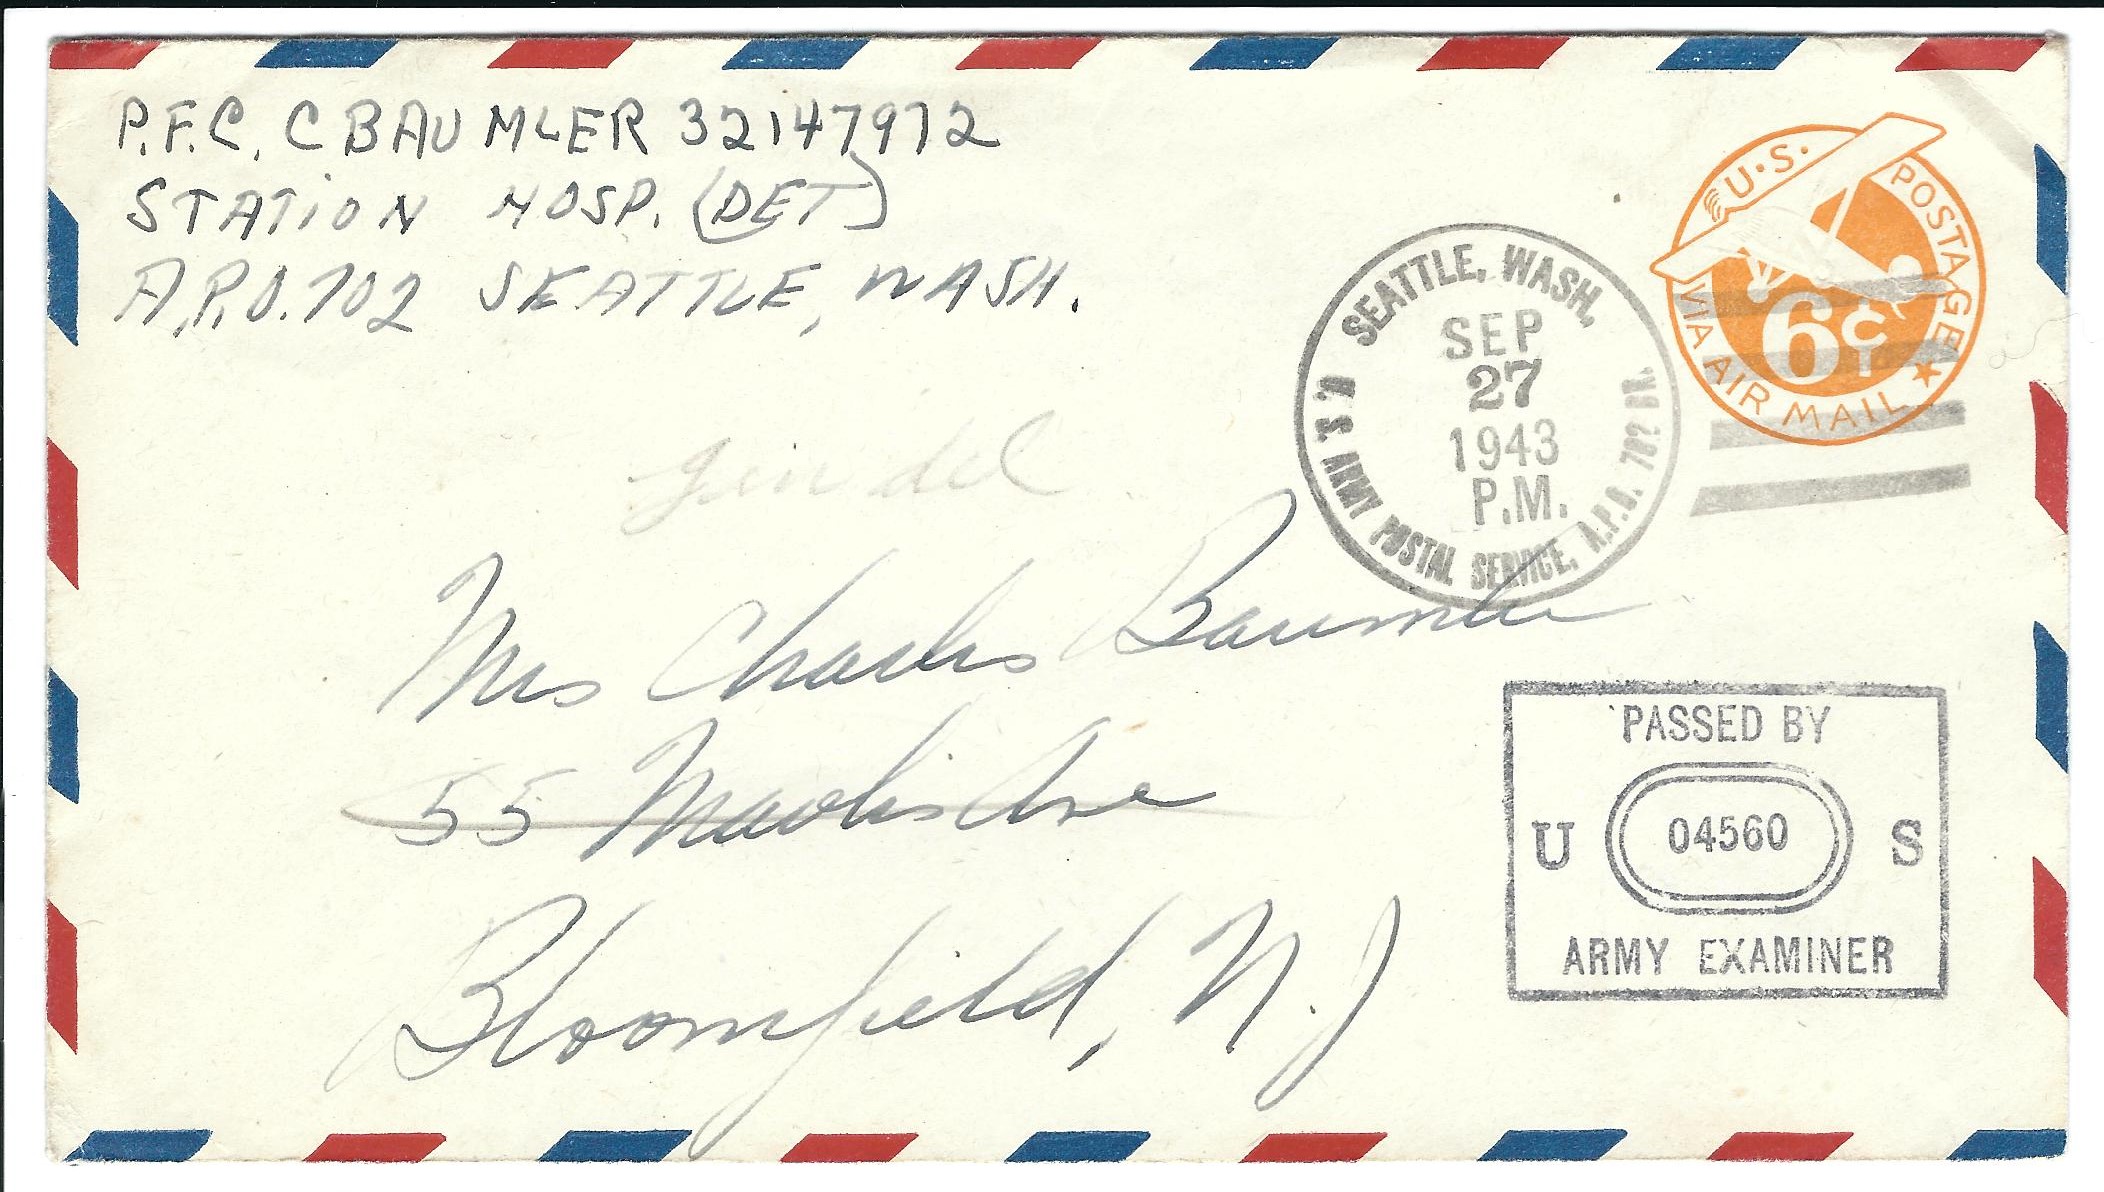 P.F.C. C BAUMLER 32147972
STATION HOSP. (DET)
A.P.O. 702 SEATTLE, WASH.
U.S. POSTAGE
6¢
VIA AIR MAIL
SEATTLE, WASH,
SEP
27
1943
P.M.
U.S. ARMY POSTAL SERVICE, A.P.O. 702 BR.
Mrs Charles Baumler
55 Ave
Bloomfield, N.J
PASSED BY
U 04560 S
ARMY EXAMINER